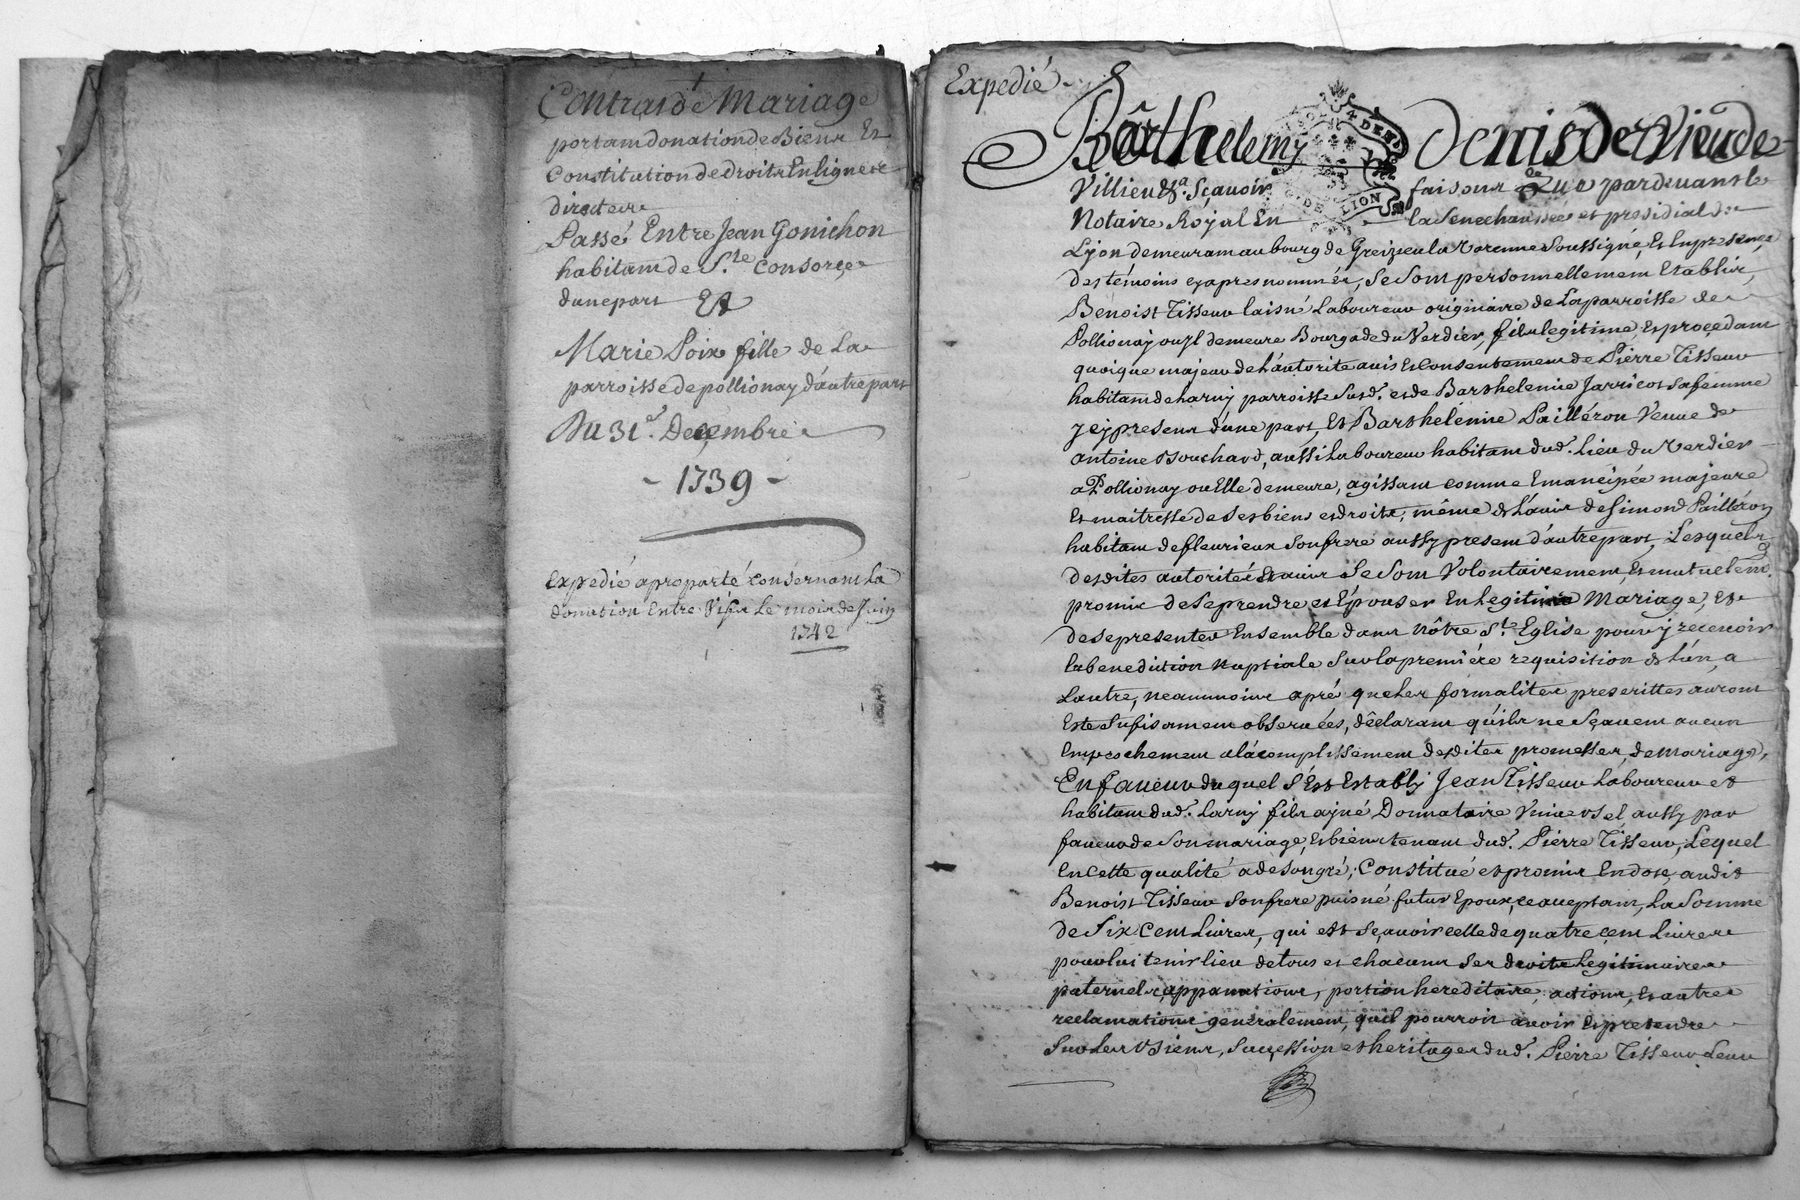 Contrat de Mariage
portant donation de Biens Et
Constitution de droits En ligne
directe
Passé Entre Jean Gonichon
habitant de S.te Consorce
d'une part Et
Marie Poix fille de La
parroisse de pollionay d'autre part
Du 31e. Decembre
- 1739 -
Expedié aproparté consernant La
donation Entre Vifs Le mois de Juin
1742
Expedié
Barthelemy Denis de Vieu de
Villieu &a. Sçavoir faisons Que pardevant le
Notaire Royal En la Senechaussée et presidial de
Lyon demeurant au bourg de Greizieu la Varenne Soussigné, Et En presence
des témoins cy apres nommés, Se Sont personnellement Etablis,
Benoist Tisseur laisné Laboureur originaire de La parroisse de
Pollionay ou Jl demeure Bourgade du Verdier, fils legitime, Et procedant
quoique majeur de L'autorité avis Et Consentement de Pierre Tisseur
habitant de Larny parroisse Susd. et de Barthelemie Jarricot Sa femme
Jcy presens d'une part, Et Barthélémie Pailléron Veuve de
Antoine Bouchard, aussi Laboureur habitant dud. Lieu du Verdier
a Pollionay ou Elle demeure, agissant comme Emancipée majeure
Et maitresse de Ses biens et droits, même de L'avis de Simond Pailléron
habitant de fleurieux Son frere aussy present d'autre part, Lesquels
desdites autorités Et avis Se Sont Volontairement, Et mutuellemt.
promis de Se prendre et Épouser En Legitime Mariage, Et
de Se presenter Ensemble dans Nôtre S.te Eglise pour y recevoir
La benediction Nuptiale Sur La premiére requisition de L'un a
Lautre, neanmoins aprés que Les formalités prescrittes auront
Esté Sufisament observées, déclarant qu'ils ne Sçavent aucun
Empechement a l'acomplissement desdites promesses de mariage,
En faveur du quel S'est Estably Jean Tisseur Laboureur et
habitant dud. Larny fils ayné Donnataire Universel aussy par
faveur de Son mariage, Et biens tenant dud. Pierre Tisseur, Lequel
En Cette qualité a de Son gré, Constitué et promis En dote audit
Benoist Tisseur Son frere puisné futur Epoux, ce aceptant, La Somme
de Six Cent Livres, qui est Sçavoir celle de quatre cent Livres
pour lui tenir lieu de tous et chacuns Ses droits Legitimaires
paternels, appanations, portion hereditaire, actions, Et autres
reclamations generalement, quil pourroit avoir Et pretendre
Sur Les Biens, Succession et heritages dud. Pierre Tisseur Leur